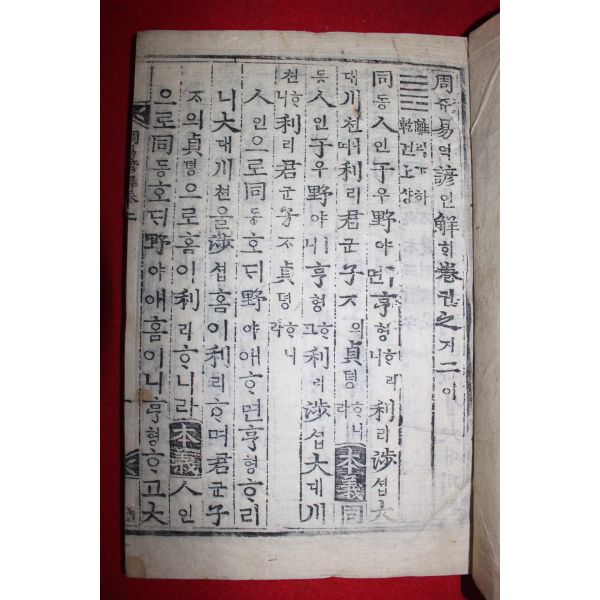 周쥬易역諺언解ᄒᆡ卷권之지二이
離리下하
乾건上샹
同동人인于우野야ㅣ면亨형ᄒᆞ리니利리涉셥大
대川쳔며利리君군子ᄌᆞ의貞뎡ᄒᆞ니라本義同
동人인于우野야ㅣ니亨형ᄒᆞ고利리涉셥大대川
쳔ᄒᆞ니利리君군子ᄌᆞ貞뎡ᄒᆞ니
人인으로同동호ᄃᆡ野야애ᄒᆞ면亨형ᄒᆞ리
니大대川쳔을涉셥홈이利리ᄒᆞ며君군子
ᄌᆞ의貞뎡으로홈이利리ᄒᆞ니라本義人인
으로同동호ᄃᆡ野야애홈이니亨형ᄒᆞ고大
周易諺解卷二